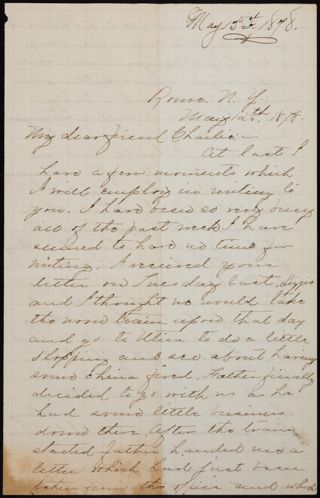 May 15th 1878.
Rome. N. Y.
May 12th. 1878.
My dear friend Charlie:-
At last I
have a few moments which
I will employ in writing to
you. I have been so very busy
all of the past week I have
seemed to have no time for
writing. I received your
letter on Tuesday last. Lizzie
and I thought we would take
the noon train upon that day
and go to Utica to do a little
shopping and see about having
some china fired. Father finally
decided to go with us as he
had some little business
down there. After the train
started father handed me a
letter which had just been
taken from the office and which